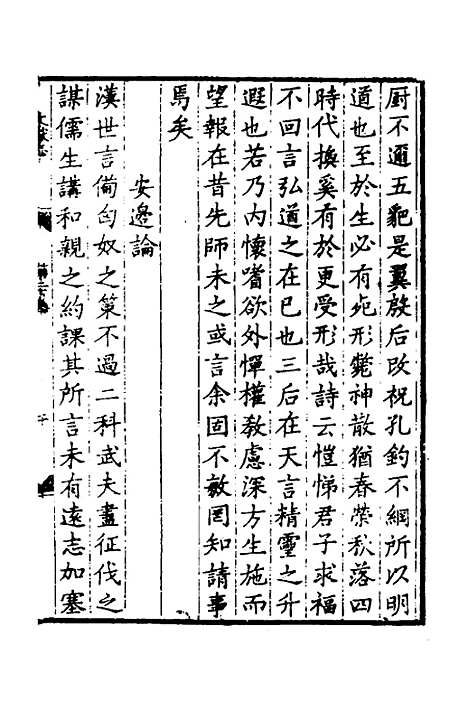 厨不邇五豝是翼殷后改祝孔釣不綱所以明
道也至於生必有死形斃神散猶春榮秋落四
時代換奚有於更受形哉詩云愷悌君子求福
不回言弘道之在已也三后在天言精靈之升
遐也若乃内懷嗜欲外憚權教慮深方生施而
望報在昔先師未之或言余固不敏罔知請事
焉矣
安邊論
漢世言備匈奴之策不過二科武夫盡征伐之
謀儒生講和親之約課其所言未有遠志加塞